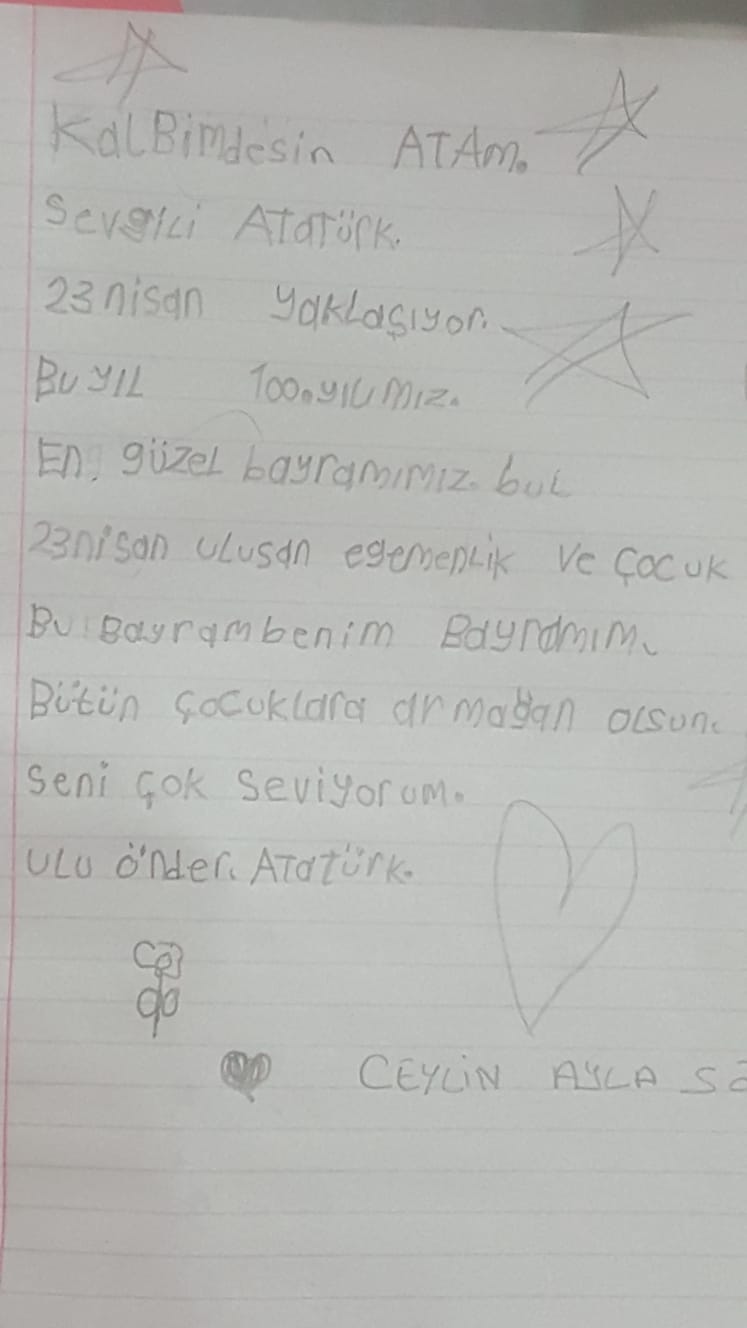 KalBimdesin ATAm.
Sevgili Atatürk.
23 nisan yaklaşıyor.
Bu yıl 100.yılımız.
En güzel bayramımız bu
23nisan ulusan egemenlik ve çocuk
Bu Bayrambenim Bayramım.
Bütün çocuklara armağan olsun.
seni çok seviyorum.
ulu önder. Atatürk.
CEYLİN AYLA